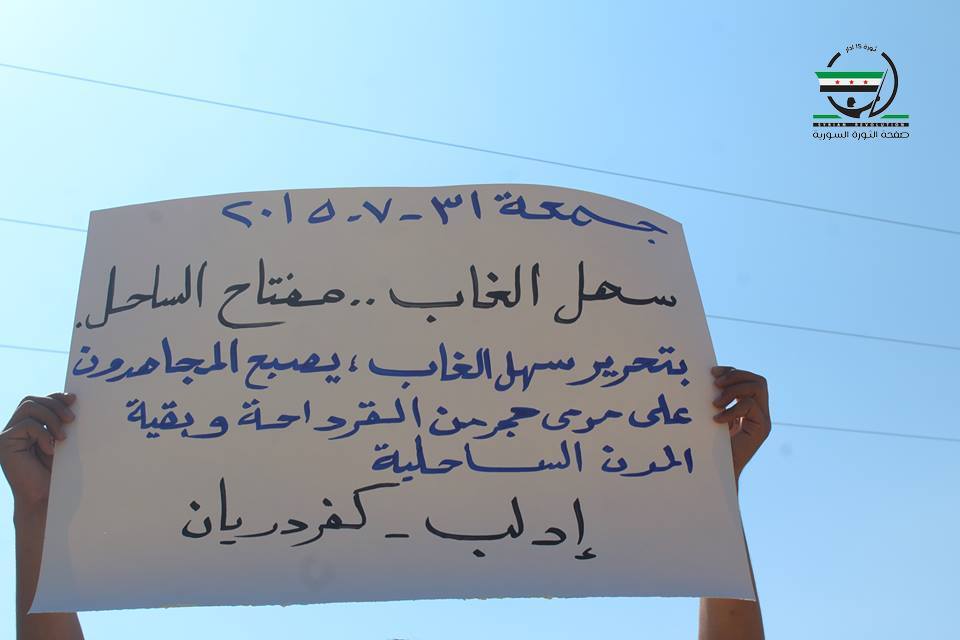 ثورة 15 آذار
SYRIAN REVOLUTION
صفحة الثورة السورية
جمعة ٣١-٧-٢٠١٥
سهل الغاب..مفتاح الساحل.
بتحرير سهل الغاب ، يصبح المجاهدون
على مرمى حجر من القرداحة وبقية
المدن الساحلية
إدلب - كفردريان